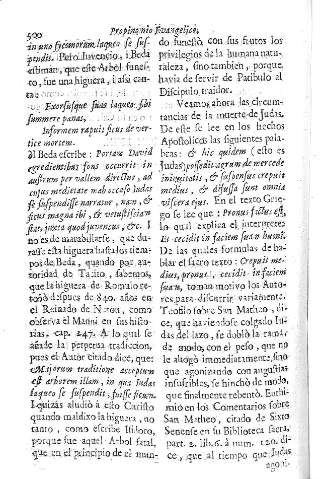 500 Propinomio Evangelico,
in uno sycomorum laqueo se sus-
pendit. Pero Juvencio, i Beda
estiman, que este Arbol funes-
to, fue una higuera, i assi can-
ta
Exorsusque suas laqueo sibi
summere pœnas,
Informem rapuit ficus de ver-
tice mortem.
al Beda escribe: Portam David
egredientibus fons occurrit in
austrum per vallem directus, ad
cujus medietate mab occaso Judas
se suspendisse narratur, nam, &
ficus magna ibi, & vetustissima
stat, juxta quod juvencus, &c. I
no es de marabillarse, que du-
rasse esta higuera hasta los tiem-
pos de Beda, quando por au-
toridad de Tacito, sabemos,
que la higuera de Romulo re-
toñò despues de 840. años en
el Reinado de Neron, como
observa el Manni en sus histo-
rias, cap. 247. A lo qual se
añade la perpetua tradiccion,
pues el Autor citado dice, que:
Majorum traditione acceptum
est arborem illam, in qua Judas
laqueo se suspendit, fuisse ficum.
I quizàs aludiò à esto Christo
quando maldixo la higuera, no
tanto, como escribe Isidoro,
porque fue aquel Arbol fatal,
que en el principio de el mun-
do funestò con sus frutos los
privilegios de la humana natu-
raleza, sino tambien, porque
havia de servir de Patibulo al
Discipulo traidor.
Veamos ahora las circuns-
tancias de la muerte de Judas.
De este se lee en los hechos
Apostolicos las siguientes pala-
bras: & hic quidem (esto es
Judas) possedit agrum de mercede
iniquitatis, & suspensus crepuit
medius, & diffusa sunt omnia
viscera ejus. En el texto Grie-
go se lee que: Pronus factus est,
lo qual explica el interprete:
Et cecidit in faciem suam humi.
De las quales formulas de ha-
blar el sacro texto: Crepuit me-
dius, pronus, cecidit in faciem
suam, toman motivo los Auto-
res para discurrir variamente.
Teofilo sobre San Matheo, di-
ce, que haviendose colgado Ju-
das del lazo, se doblò la rama
de modo, con el peso, que no
le ahogò immediatamente, sino
que agonizando con augustias
insufribles, se hinchò de modo,
que finalmente rebentò. Euthi-
mio en los Comentarios sobre
San Matheo, citado de Sixto
Senense en su Biblioteca sacra,
part. 2. lib. 6. à num. 120. di-
ce, que al tiempo que Judas